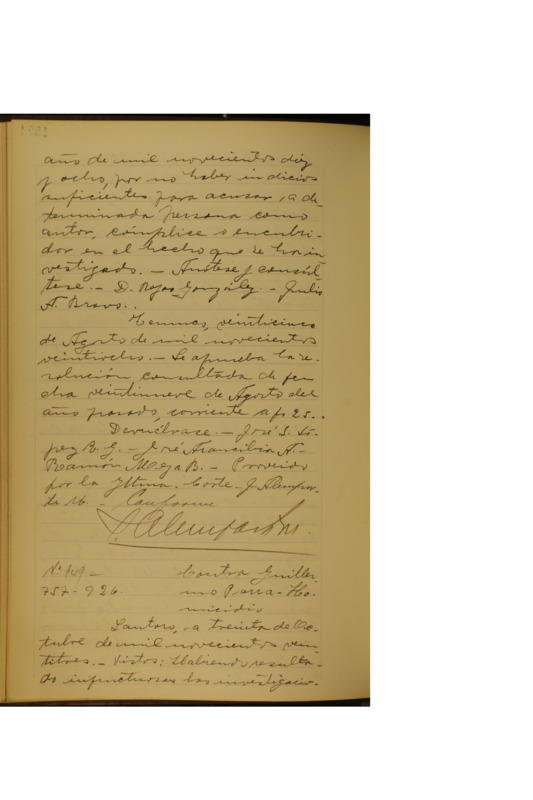 año de mil novecientos diez
y ocho, por no haber indicios
suficientes para acusar, a de
terminada persona como
autor, cómplice o encubri-
dor en el hecho que se ha in
vestigado. — Anótese y consúl
tese. — D. Rojas González. — Julio
A. Bravo.
Temuco, veinticinco
de Agosto de mil novecientos
veintiocho. — Se aprueba la re-
solución consultada de fe
cha veintinueve de Agosto del
año pasado, corriente a fs 25..
Devuélvase. — José S. Ló-
pez R. G. — José Arancibia A. —
Ramón Meza B. — Proveído
por la Iltma. Corte. J. Alempar-
te M. — Conforme
J. Alemparte M.
Nº 149 —
757 - 926.
Contra Guiller-
mo Parra - Ho-
micidio
Lautaro, a treinta de Oc-
tubre de mil novecientos vein-
titres. — Vistos: Habiendo resulta-
do infructuosas las investigacio-